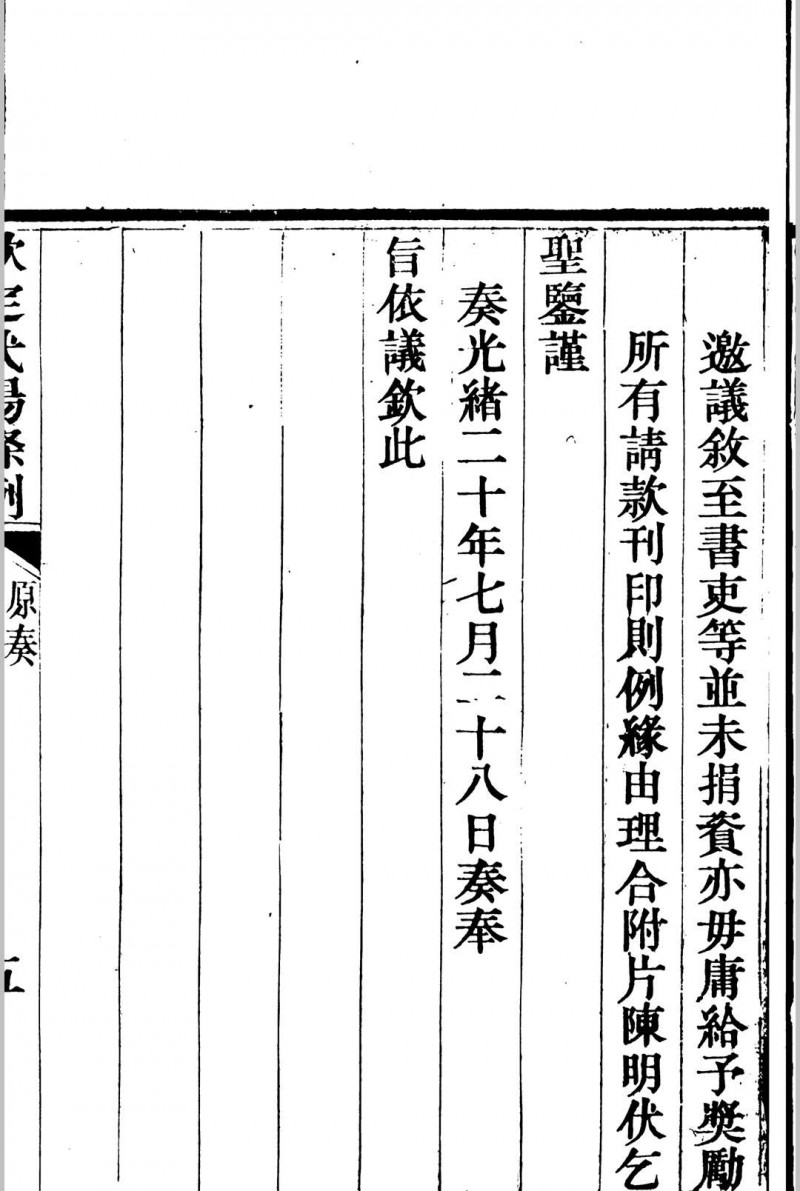 邀議敘至書吏等並未捐資亦毋庸給予奬勵
所有請款刊印則例緣由理合附片陳明伏乞
聖鑒謹
奏光緒二十年七月二十八日奏奉
旨依議欽此
欽定武場條例
原奏
五